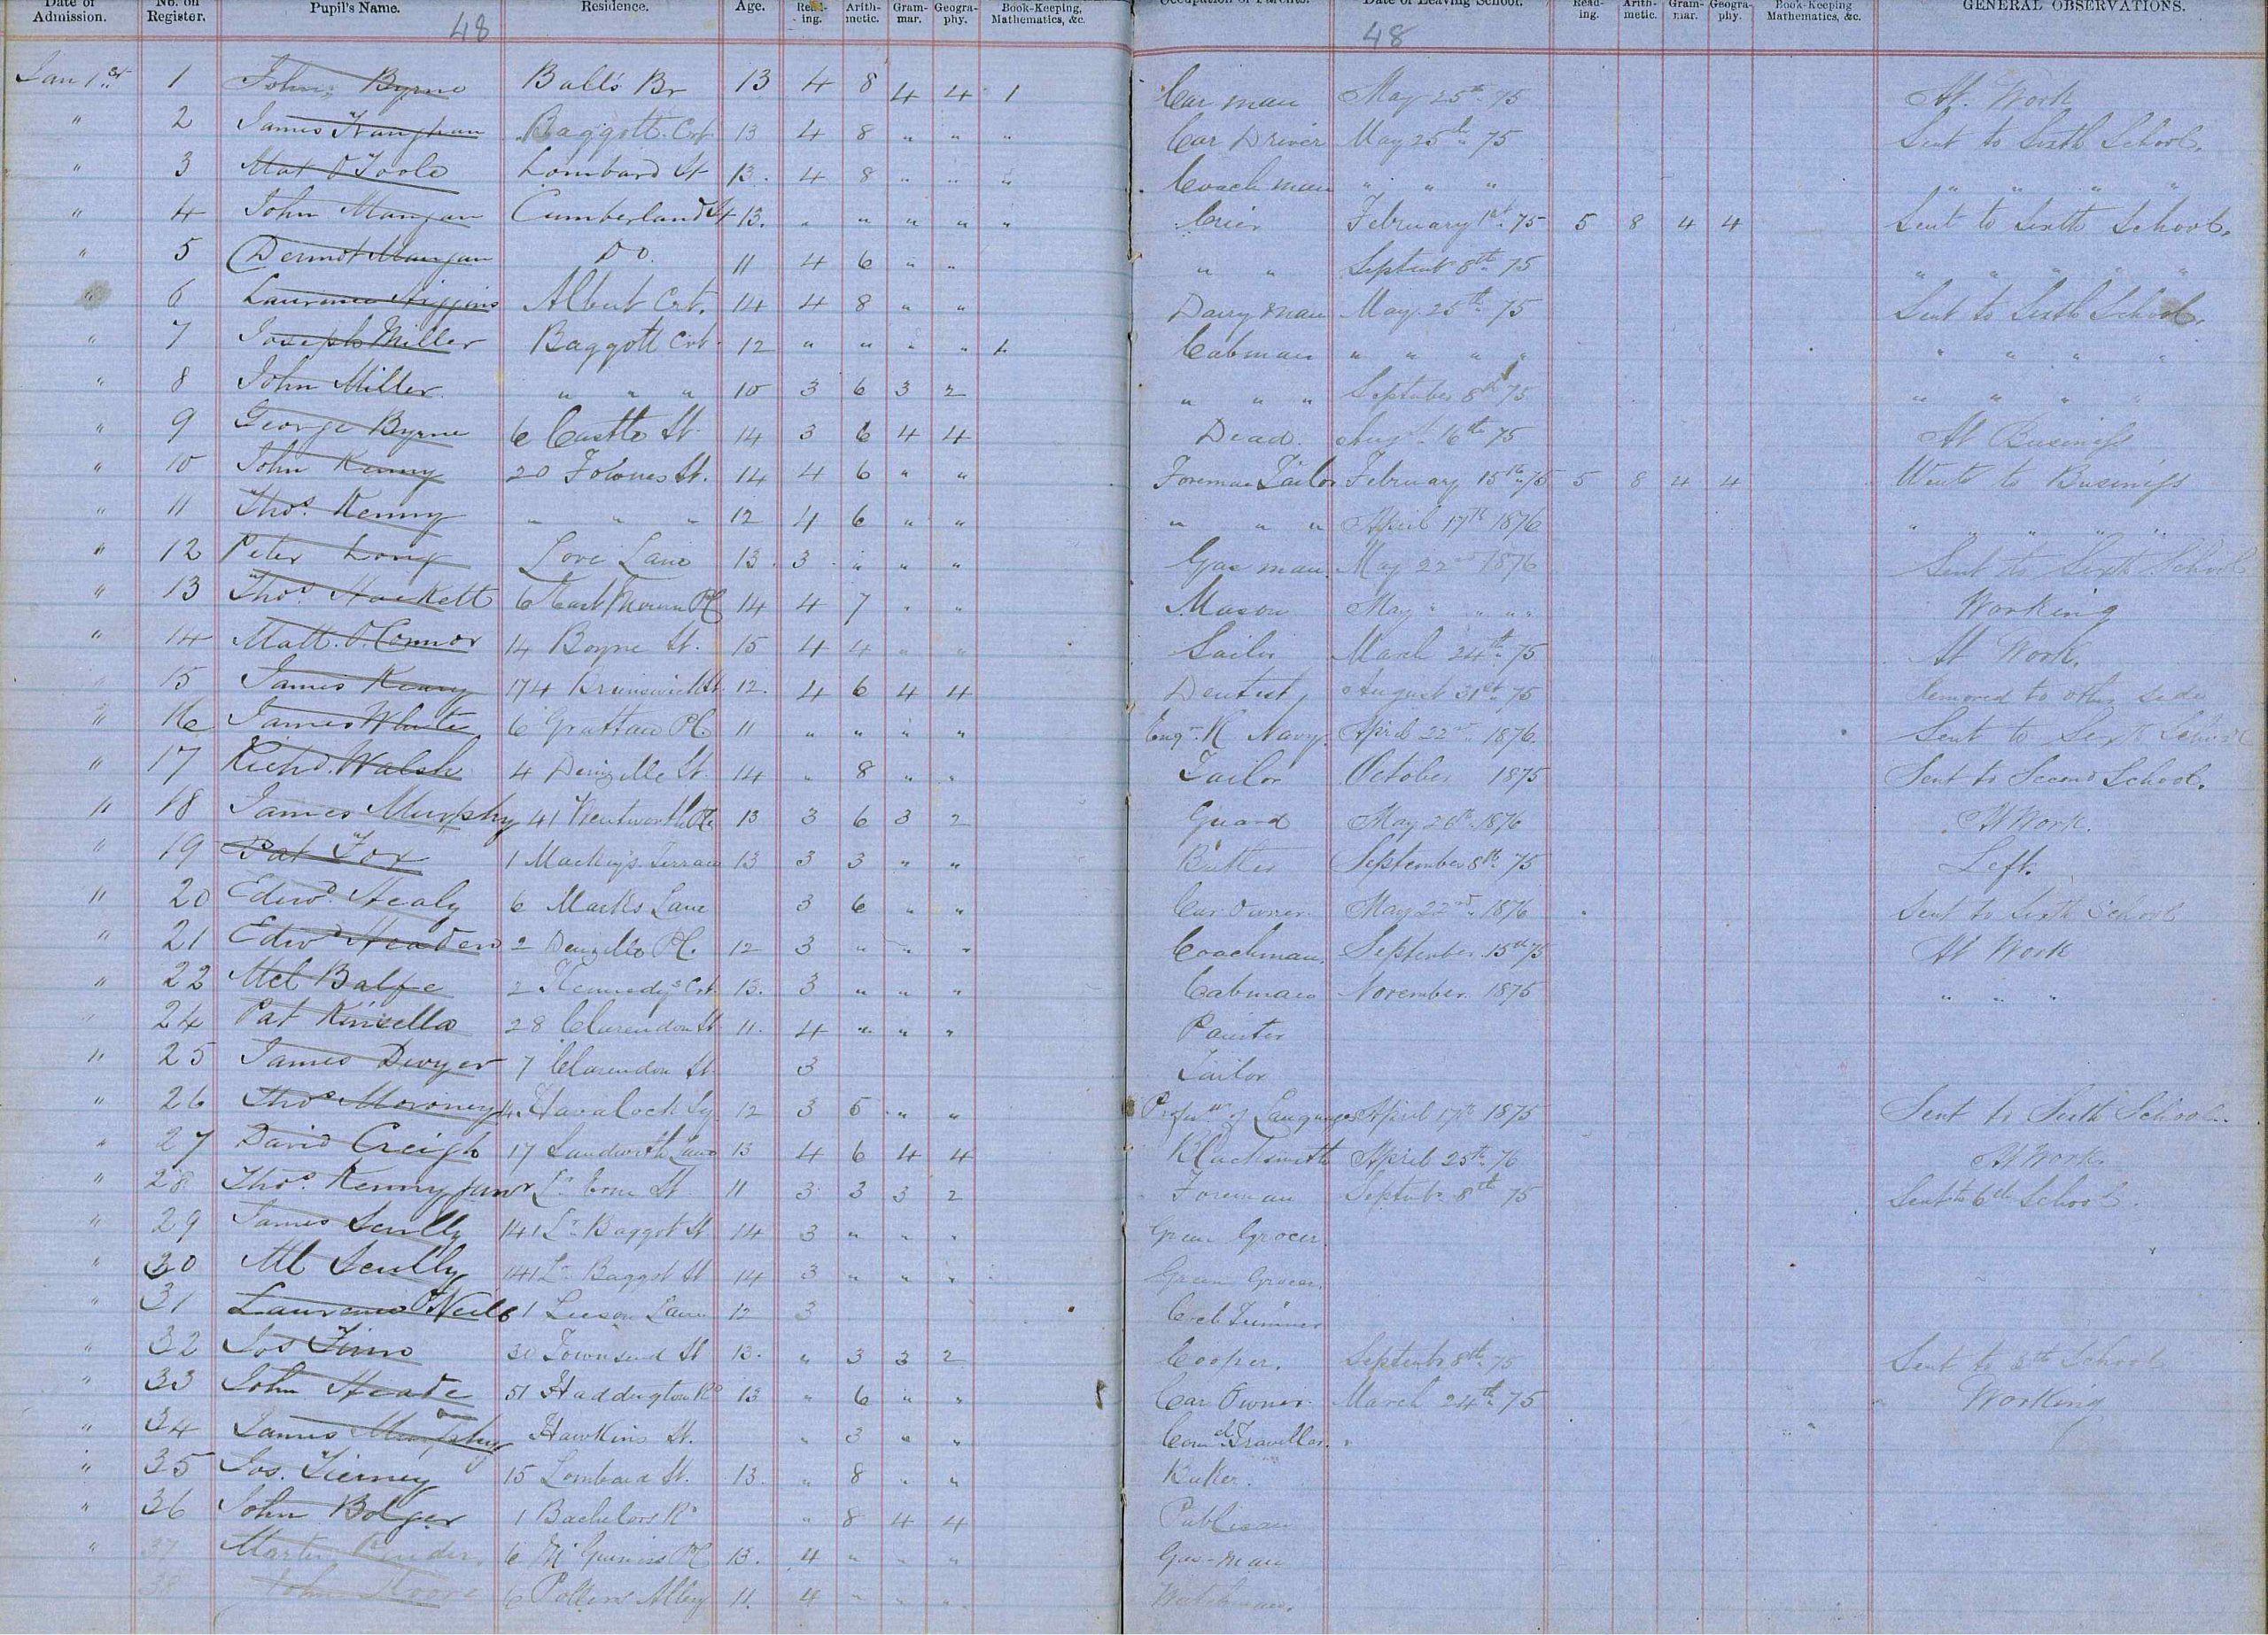 Date of Admission. No. on Register. Pupil's Name. Residence. Age. Read-ing. Arith-metic. Gram-mar. Geogra-phy. Book-Keeping, Mathematics, &c. Occupation of Parents. Date of Leaving School. Read-ing. Arith-metic. Gram-mar. Geogra-phy. Book-Keeping Mathematics, &c. GENERAL OBSERVATIONS.
48 48
Jan 1st 1 John Byrne Ball's Br 13 4 8 4 4 1 Car man May 25th 75 At Work
" 2 James Baggott Crt 13 4 8 " " " Car Driver May 25th 75 Sent to Sixth School.
" 3 Mat O'Toole Lombard St 13. 4 8 " " " Coach man " " " " " " "
" 4 John Mangan Cumberland St 13. " " " " " Crier February 1st 75 5 8 4 4 Sent to Sixth School.
" 5 Dermot Mangan Do. 11 4 6 " " " " Septemb 8th 75 " " " " "
" 6 Laurence Higgins Albert Crt. 14 4 8 " " Dairy man May 25th 75 Sent to Sixth School.
" 7 Joseph Miller Baggott Crt 12 " " " " Cabman " " " " " " " "
" 8 John Miller " " " 10 3 6 3 2 " " " September 8th 75 " " " "
" 9 George Byrne 6 Castle St. 14 3 6 4 4 Dead. Augst 16th 75 At Business
" 10 John Kenny 20 Fownes St. 14 4 6 " " Foreman Tailor February 15th 75 5 8 4 4 Went to Business
" 11 Thos. Kenny " " " 12 4 6 " " " " " April 17th 1876 " " " " "
" 12 Peter Long Love Lane 13. 3 " " " Gas man. May 22nd 1876 Sent to Sixth School
" 13 Thos. Hackett 6 Pl 14 4 7 " " Mason May " " " " Working
" 14 Matt. O'Connor 14 Boyne St. 15 4 4 " " March 24th 75 At Work.
" 15 James Kenny 174 Brunswick St. 12. 4 6 4 4 Dentist August 31st 75 Removed to other side
" 16 James White 6 Grattan Pl. 11 " " " " Engr. R Navy. April 22nd 1876. Sent to Sixth School
" 17 Richd. Walsh 4 Denzille St. 14 " 8 " " Tailor October 1875 Sent to Second School.
" 18 James Murphy 41 Wentworth Pl. 13 3 6 3 2 Guard May 26th 1876 At Work.
" 19 Pat Fox 1 Mackey's Terrace 13 3 3 " " Butler September 8th 75 Left.
" 20 Edwd. Healy 6 Marks Lane 3 6 " " Car Owner May 22nd 1876 Sent to Sixth School
" 21 Edwd Headen 2 Denzille Pl. 12 3 " " " Coachman. September 15th 75 At Work
" 22 Mcl Balfe 2 Kennedys Crt. 13. 3 " " " Cabman November 1875 " " "
" 24 Pat Kinsella 28 Clarendon St 11. 4 " " " Painter
" 25 James Dwyer 7 Clarendon St 3 Tailor
" 26 Thos Moroney 4. Havalock Sq. 12 3 5 " " of Languages April 17th 1875 Sent to Sixth School.
" 27 David Creigh 17 Sandwith Lane 13 4 6 4 4 Blacksmith April 25th 76 At Work
" 28 Thos. Kenny junr Lr Erne St. 11 3 3 3 2 Foreman Septemb. 8th 75 Sent to 6th School.
" 29 James Scully 141 Lr Baggot St 14 3 " " " Green Grocer.
" 30 Ml Scully 141 Lr Baggot St 14 3 " " " Green Grocer.
" 31 Laurence O'Neill 61 Leeson Lane 12 3
" 32 Jos 30 Townsend St 13. " 3 3 2 Cooper. Septemb 8th 75 Sent to School
" 33 John Heade 51 Haddington Rd 13 " 6 " " Car Owner March 24th 75 Working
" 34 James Murphy Hawkins St. " 3 " " Comcl Traveller.
" 35 Jos. Tierney 15 Lombard St. 13. " 8 " " Baker.
" 36 John Bolger 1 Bachelors " 8 4 4 Publican
" 37 Martin 6 Pl 13. 4 " " " Gas-man
38 John Moore 6 Alley 11. 4 " " " Watchman.